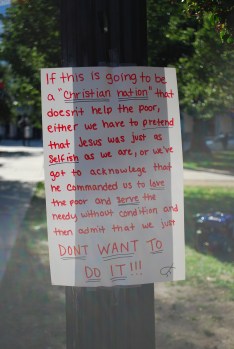 If this is going to be
a "Christian nation" that
doesn't help the poor,
either we have to pretend
that Jesus was just as
selfish as we are, or we've
got to acknowlege that
he commanded us to love
the poor and serve the
needy without condition and
then admit that we just
DONT WANT TO
DO IT!!!